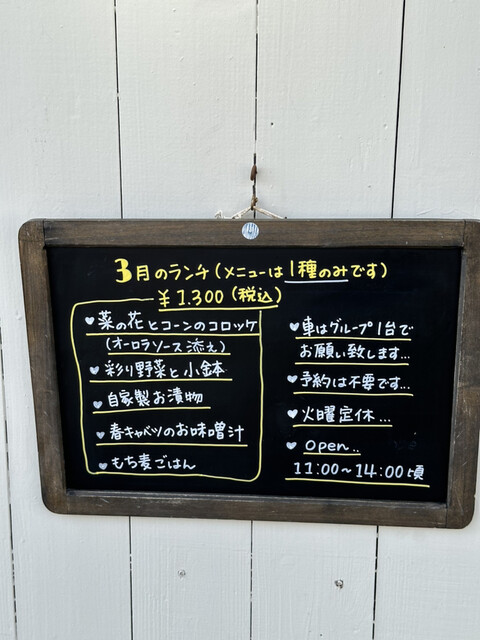 3月のランチ(メニューは1種のみです)
¥1.300(税込)
♥菜の花とコーンのコロッケ
(オーロラソース添え)
♥彩り野菜と小鉢
♥自家製お漬物
♥春キャベツのお味噌汁
♥もち麦ごはん
♥車はグループ1台で
お願い致します...
♥予約は不要です...
♥火曜定休...
♥open..
11:00~14:00頃